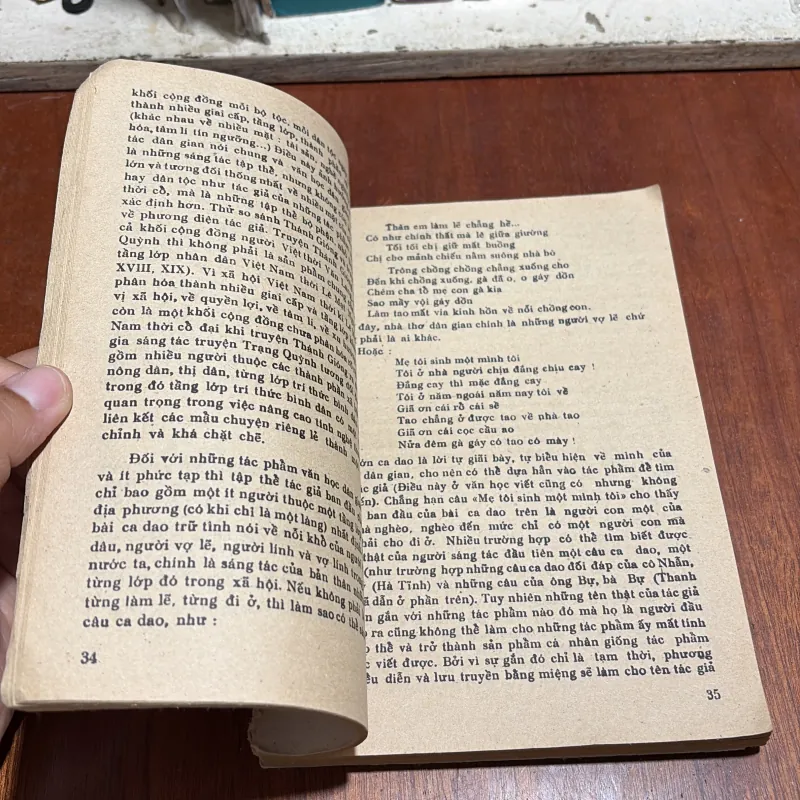 khối cộng đồng mỗi bộ tộc, mỗi dân tộc
thành nhiều giai cấp, tầng lớp, thành phần
(khác nhau về nhiều mặt : tài sản, nghề
hóa, tâm lí tín ngưỡng...) Điều này
tác dân gian nói chung và văn học dân
là những sáng tác tập thể, nhưng không
lớn và tương đối thống nhất về nhiều mặt
hay dân tộc như tác giả của những tác
thời cổ, mà là những tập thể bộ phận,
xác định hơn. Thử so sánh Thánh Gióng
về phương diện tác giả. Truyện Thánh Gióng
cả khối cộng đồng người Việt thời Văn
Quỳnh thì không phải là sản phẩm chung
tầng lớp nhân dân Việt Nam thời Lê
XVIII, XIX). Vì xã hội Việt Nam thời kì
phân hóa thành nhiều giai cấp và tầng lớp
vị xã hội, về quyền lợi, về tâm lí, về
còn là một khối cộng đồng chưa phân hóa
Nam thời cổ đại khi truyện Thánh Gióng
gia sáng tác truyện Trạng Quỳnh tương đối
gồm nhiều người thuộc các thành phần
nông dân, thị dân, từng lớp trí thức bình dân
trong đó tầng lớp trí thức bình dân có một
quan trọng trong việc nâng cao tính nghệ
liên kết các mẩu chuyện riêng lẻ thành
chỉnh và khá chặt chẽ.
Đối với những tác phẩm văn học dân
và ít phức tạp thì tập thể tác giả ban đầu
chỉ bao gồm một ít người thuộc một tầng lớp
địa phương (có khi chỉ là một làng) nhất định
bài ca dao trữ tình nói về nỗi khổ của người
dâu, người vợ lẽ, người lính và vợ lính trong
nước ta, chính là sáng tác của bản thân
từng lớp đó trong xã hội. Nếu không phải
từng làm lẽ, từng đi ở, thì làm sao có thể
câu ca dao, như :
34
Thân em làm lẽ chẳng hề...
Có như chính thất mà lê giữa giường
Tối tối chị giữ mất buồng
Chị cho mảnh chiếu nằm suông nhà bò
Trông chồng chồng chẳng xuống cho
Đến khi chồng xuống, gà đã o, o gáy dồn
Chém cha tổ mẹ con gà kia
Sao mầy vội gáy dồn
Làm tao mất vía kinh hồn về nỗi chồng con.
đây, nhà thơ dân gian chính là những người vợ lẽ chứ
phải là ai khác.
Hoặc :
Mẹ tôi sinh một mình tôi
Tôi ở nhà người chịu đắng chịu cay !
Đắng cay thì mặc đắng cay
Tôi ở năm ngoái năm nay tôi về
Giã ơn cái rổ cái sề
Tao chẳng ở được tao về nhà tao
Giã ơn cái cọc cầu ao
Nửa đêm gà gáy có tao có mày !
ca dao là lời tự giãi bày, tự biểu hiện về mình của
dân gian, cho nên có thể dựa hẳn vào tác phẩm để tìm
giả (Điều này ở văn học viết cũng có nhưng không
Chẳng hạn câu «Mẹ tôi sinh một mình tôi» cho thấy
ban đầu của bài ca dao trên là người con một của
nghèo, nghèo đến mức chỉ có một người con mà
cho đi ở. Nhiều trường hợp có thể tìm biết được
thật của người sáng tác đầu tiên một câu ca dao, một
(như trường hợp những câu ca dao đối đáp của cô Nhẫn,
(Hà Tĩnh) và những câu của ông Bự, bà Bự (Thanh
dẫn ở phần trên). Tuy nhiên những tên thật của tác giả
gắn với những tác phẩm nào đó mà họ là người đầu
ra cũng không thể làm cho những tác phẩm ấy mất tính
thể và trở thành sản phẩm cá nhân giống tác phẩm
viết được. Bởi vì sự gắn đó chỉ là tạm thời, phương
diễn và lưu truyền bằng miệng sẽ làm cho tên tác giả
35